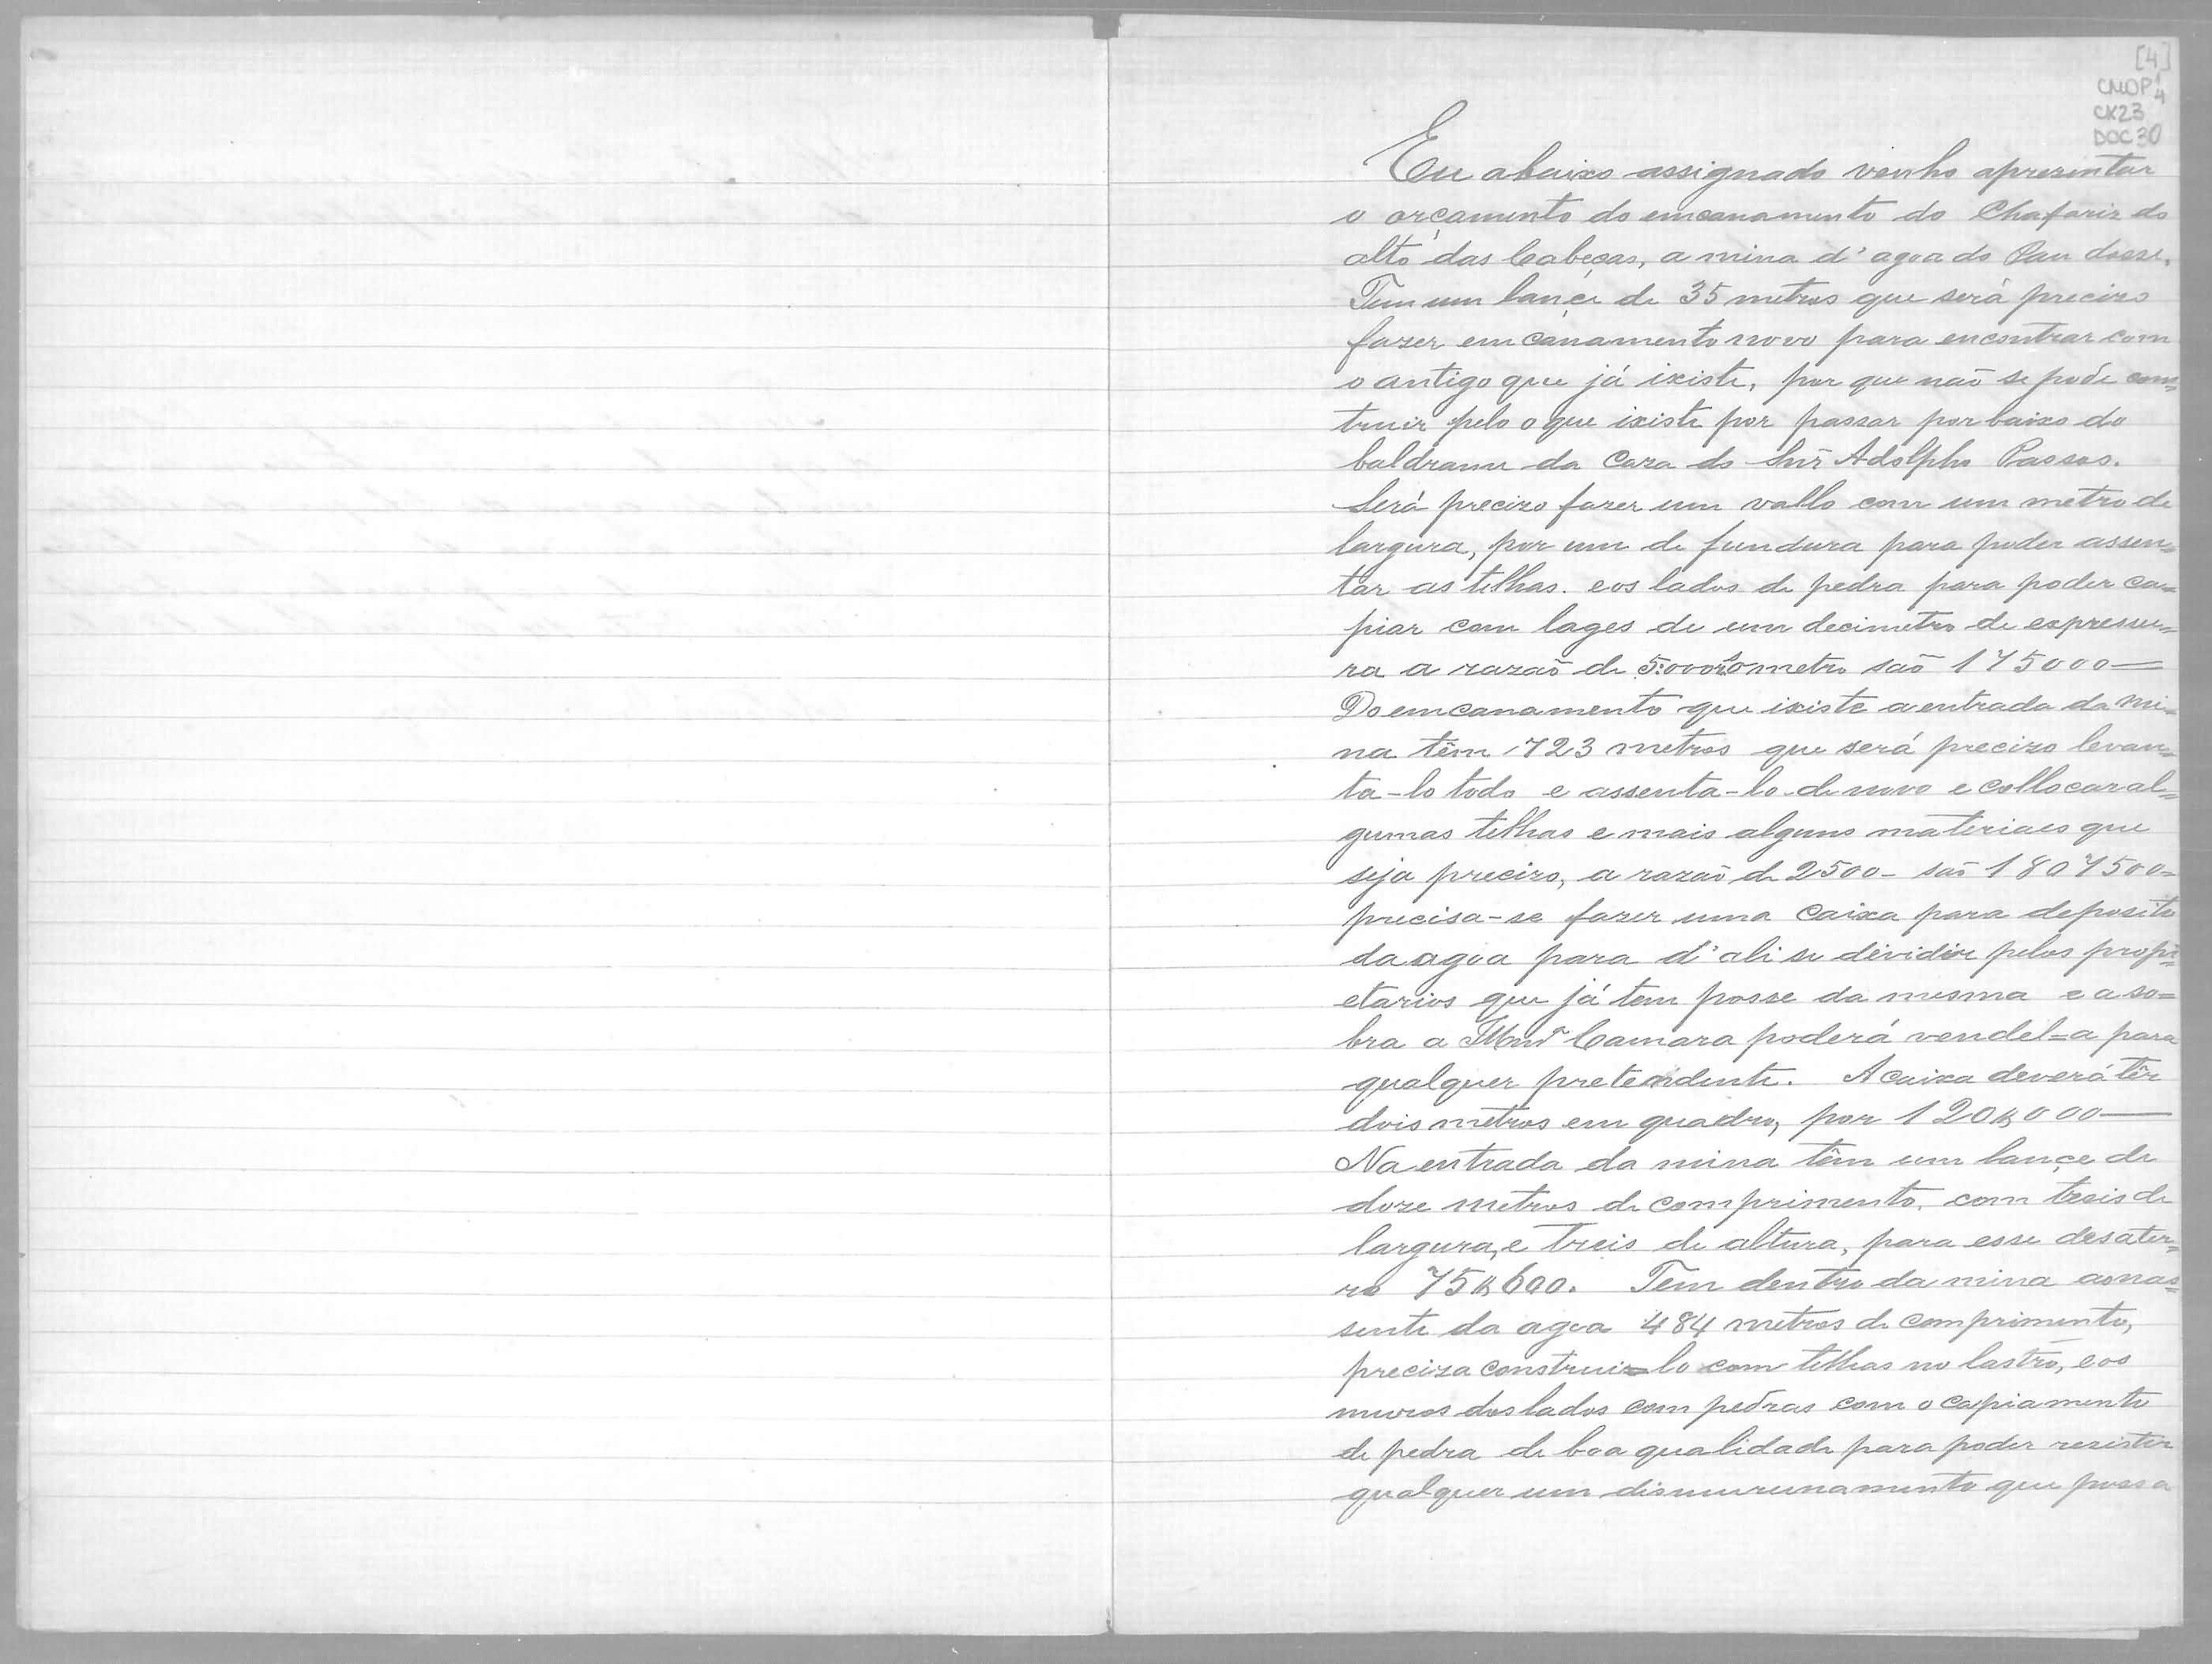 [4]
CMOP 1/4
CX23
DOC 30
Eu abaixo assignado venho aprezentar
o orçamento do emcanamento do Chafariz do
alto das Cabeças, a mina d'agoa do Pau dosse.
Tem um lançe de 35 metros que será precizo
fazer emcanamento novo para encontrar com
o antigo que já ixiste, por que não se pode com=
truir pelo o que ixiste por passar por baixo do
baldrame da Caza do Snr Adolpho Passos.
Será precizo fazer um vallo com um metro de
largura, por um de fundura para poder assen=
tar as telhas. e os lados de pedra para poder ca=
piar com lages de um decimetro de expressu=
ra a razaõ de 5:000 o metro saõ 175000—
Do emcanamento que ixiste a entrada da mi=
na têm 723 metros que será precizo levan=
ta-lo todo e assenta-lo de novo e collocar al=
gumas telhas e mais alguns materiaes que
seja precizo, a razaõ de 2500- saõ 1807500=
precisa-se fazer uma Caixa para deposito
da agoa para d'ali se dividir pelos propi=
etarios que já tem posse da mesma e a so=
bra a Camara poderá vendel=a para
qualquer pretendente. A caixa deverá têr
dois metros em quadro, por 120$000—
Na entrada da mina têm um lançe de
doze metros de comprimento, com treis de
largura, e treis de altura, para esse desater=
ro 75$600. Tem dentro da mina ao nas=
sente da agoa 484 metros de comprimento,
preciza construir=lo com telhas no lastro, e os
muros dos lados com pedras com o capiamento
de pedra de boa qualidade para poder rezistir
qualquer um dismurunamento que possa